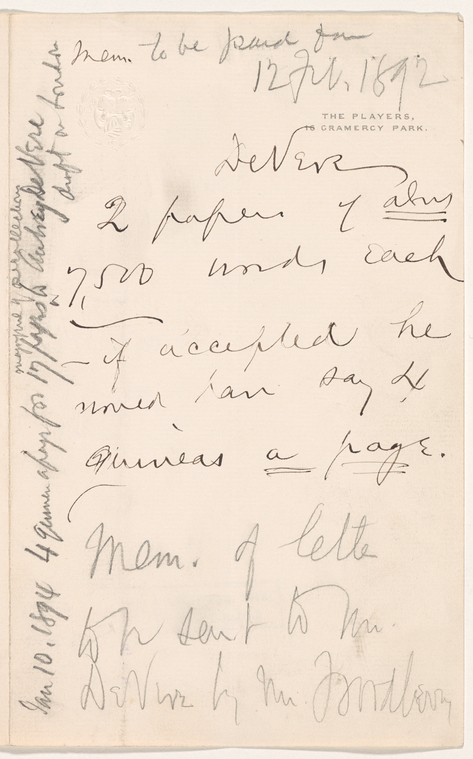 Mem. to be paid
12 Feb. 1892
THE PLAYERS,
16 GRAMERCY PARK.
DeVere
2 papers of
7,500 words each
– if accepted he
say 4
guineas a page.
Mem. of
to be sent to Mr.
DeVere by Mr.
Jan 10. 1894 4 guineas a page for 17 pages to Aubrey de Vere
draft on London